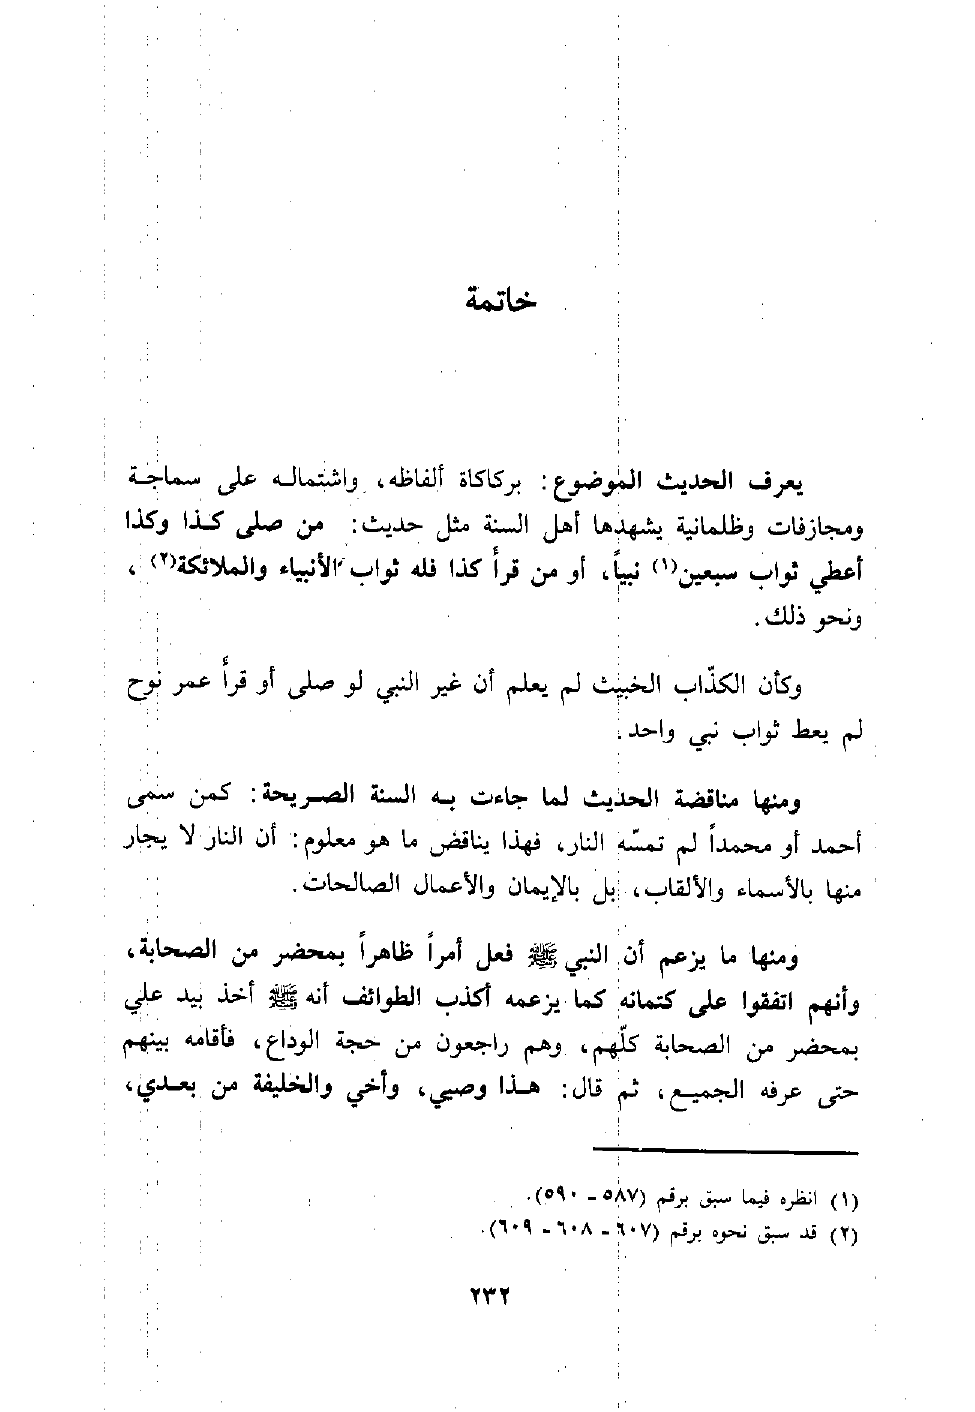 خاتمة
يعرف الحديث الموضوع: بركاكاة ألفاظه، واشتماله على سماجة
ومجازفات وظلمانية يشهدها أهل السنة مثل حديث: من صلى كذا وكذا
أعطي ثواب سبعين(١) نبياً، أو من قرأ كذا فله ثواب الأنبياء والملائكة(٢)،
ونحو ذلك.
وكأن الكذّاب الخبيث لم يعلم أن غير النبي لو صلى أو قرأ عمر نوح
لم يعط ثواب نبي واحد.
ومنها مناقضة الحديث لما جاءت به السنة الصريحة: كمن سمى
أحمد أو محمداً لم تمسّه النار، فهذا يناقض ما هو معلوم: أن النار لا يجار
منها بالأسماء والألقاب، بل بالإيمان والأعمال الصالحات.
ومنها ما يزعم أن النبي ﷺ فعل أمراً ظاهراً بمحضر من الصحابة،
وأنهم اتفقوا على كتمانه كما يزعمه أكذب الطوائف أنه ﷺ أخذ بيد علي
بمحضر من الصحابة كلّهم، وهم راجعون من حجة الوداع، فأقامه بينهم
حتى عرفه الجميع، ثم قال: هذا وصيي، وأخي والخليفة من بعدي،
(١) انظره فيما سبق برقم (٥٨٧ - ٥٩٠).
(٢) قد سبق نحوه برقم (٦٠٧ - ٦٠٨ - ٦٠٩).
٢٣٢